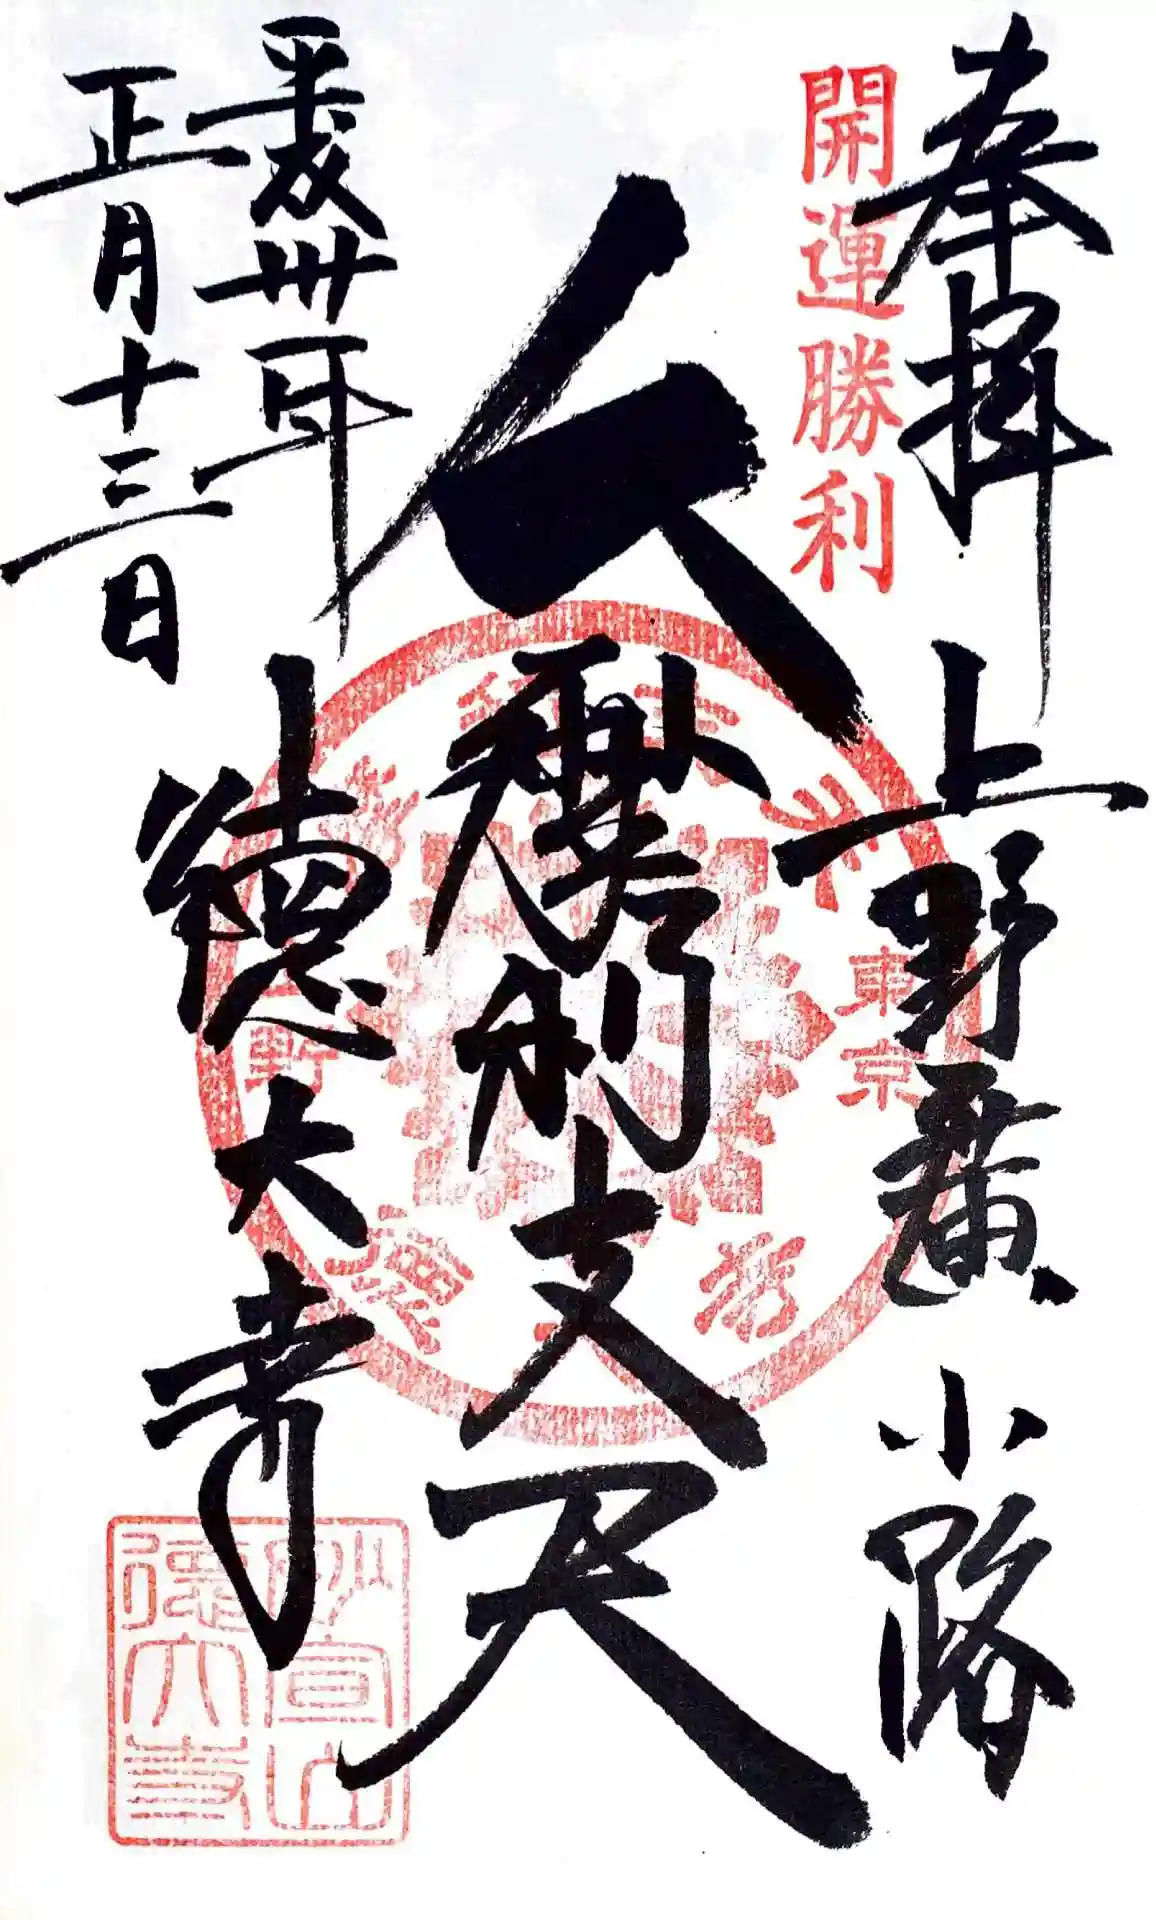 奉拝
開運勝利
上野廣小路
大摩利支天
東京
平成卅年
正月十三日
徳大寺
妙宣山
徳大寺